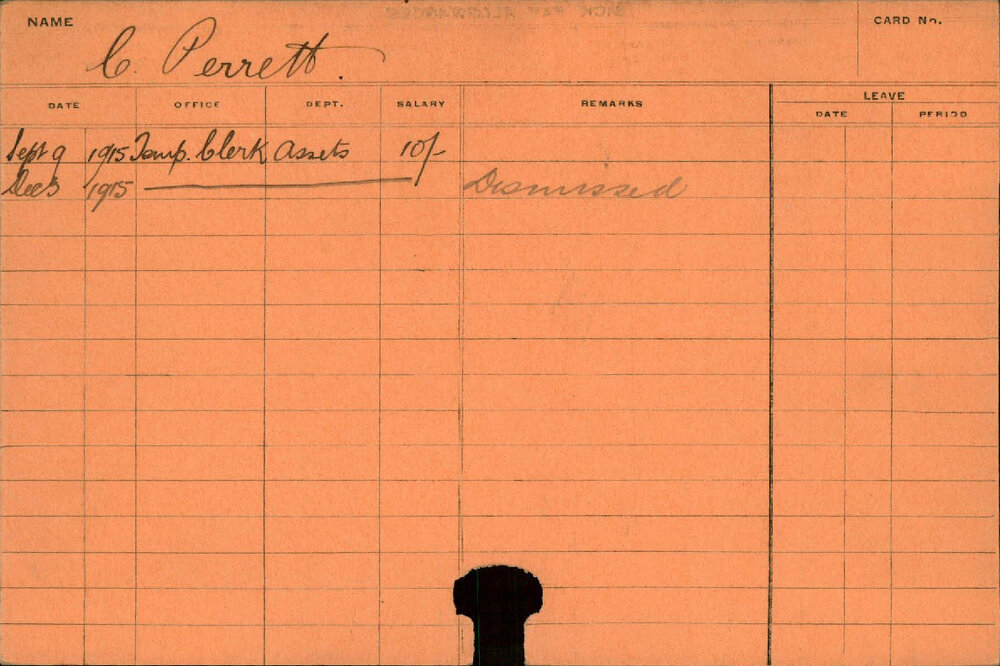 NAME
CARD No.
C. Perrett.
DATE OFFICE DEPT. SALARY REMARKS LEAVE
DATE PERIOD
Sept 9 1915 Temp. Clerk Assets 10/-
Dec 3 1915 Dismissed